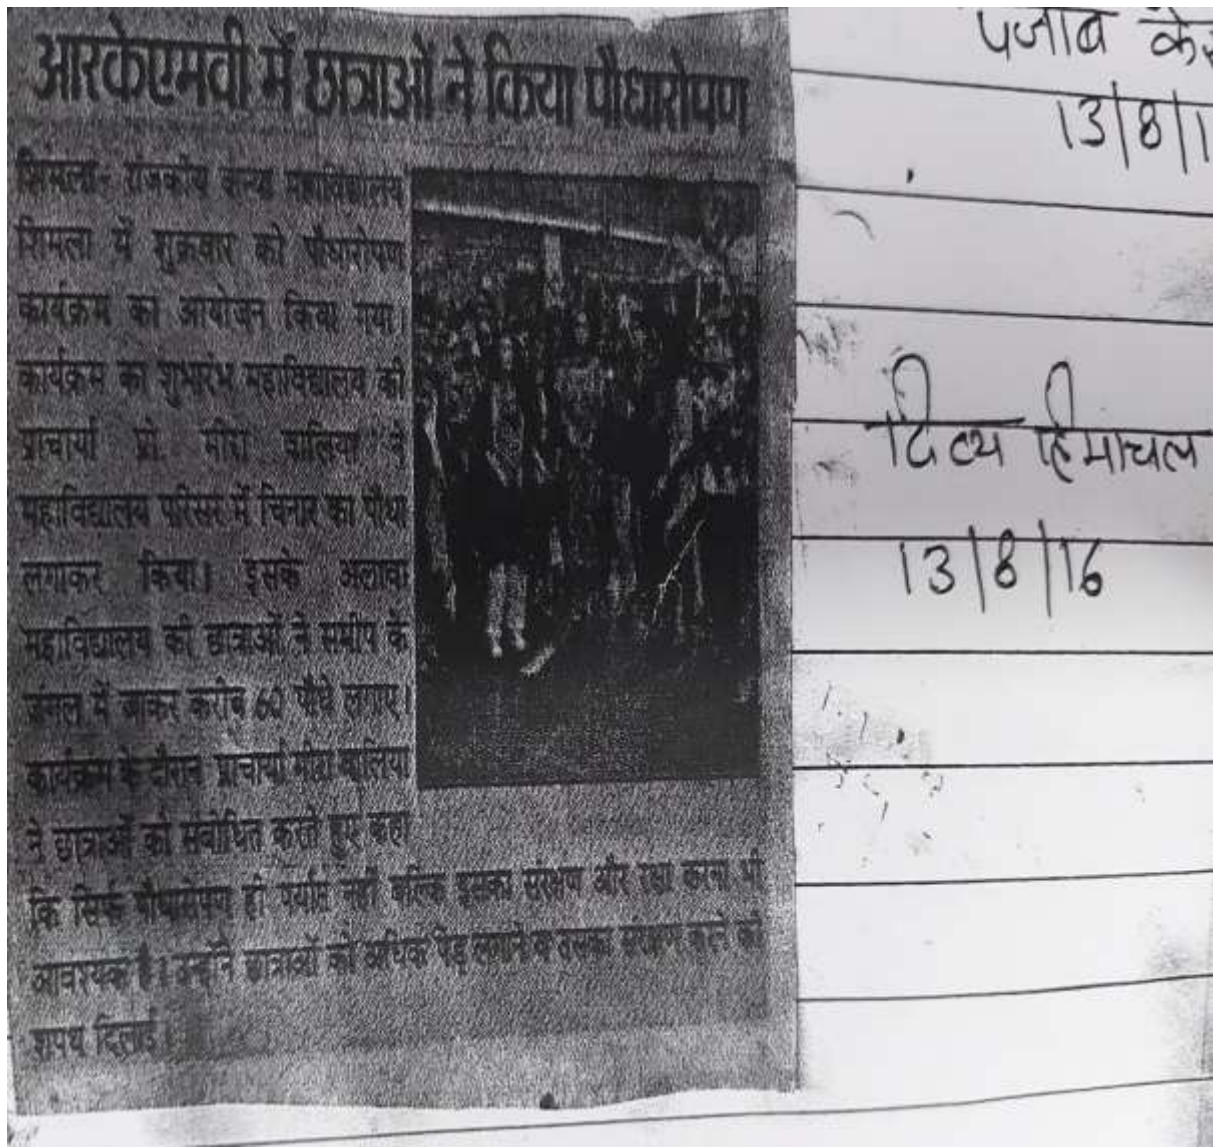 आरकेएमवी में छात्राओं ने किया पौधारोपण
शिमला- राजकीय कन्या महाविद्यालय
शिमला में शुक्रवार को पौधारोपण
कार्यक्रम का आयोजन किया गया।
कार्यक्रम का शुभारंभ महाविद्यालय की
प्राचार्या प्रो. मीरा वालिया ने
महाविद्यालय परिसर में चिनार का पौधा
लगाकर किया। इसके अलावा
महाविद्यालय की छात्राओं ने समीप के
जंगल में जाकर करीब 60 पौधे लगाए।
कार्यक्रम के दौरान प्राचार्या मीरा वालिया
ने छात्राओं को संबोधित करते हुए कहा
कि सिर्फ पौधारोपण ही पर्याप्त नहीं बल्कि इसका संरक्षण और रक्षा करना भी
आवश्यक है। उन्होंने छात्राओं को अधिक पेड़ लगाने व उसका संरक्षण करने की
शपथ दिलाई।
पंजाब
13/8/1
दिव्य हिमाचल
13/8/16